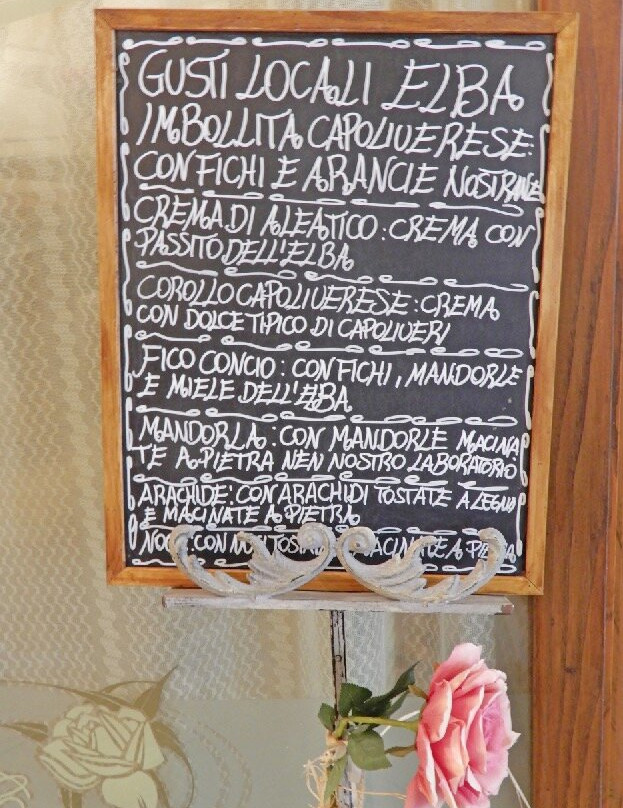 GUSTI LOCALI ELBA
IMBOLLITA CAPOLIVERESE:
CON FICHI E ARANCIE NOSTRANE
CREMA DI ALEATICO: CREMA CON
PASSITO DELL'ELBA
COROLLO CAPOLIVERESE: CREMA
CON DOLCE TIPICO DI CAPOLIVERI
FICO CONCIO: CON FICHI, MANDORLE
E MIELE DELL'ELBA
MANDORLA: CON MANDORLE MACINA
TE A PIETRA NEN NOSTRO LABORATORIO
ARACHIDE: CON ARACHIDI TOSTATE A LEGNO
E MACINATE A PIETRA
CON MACINATE A PIETRA